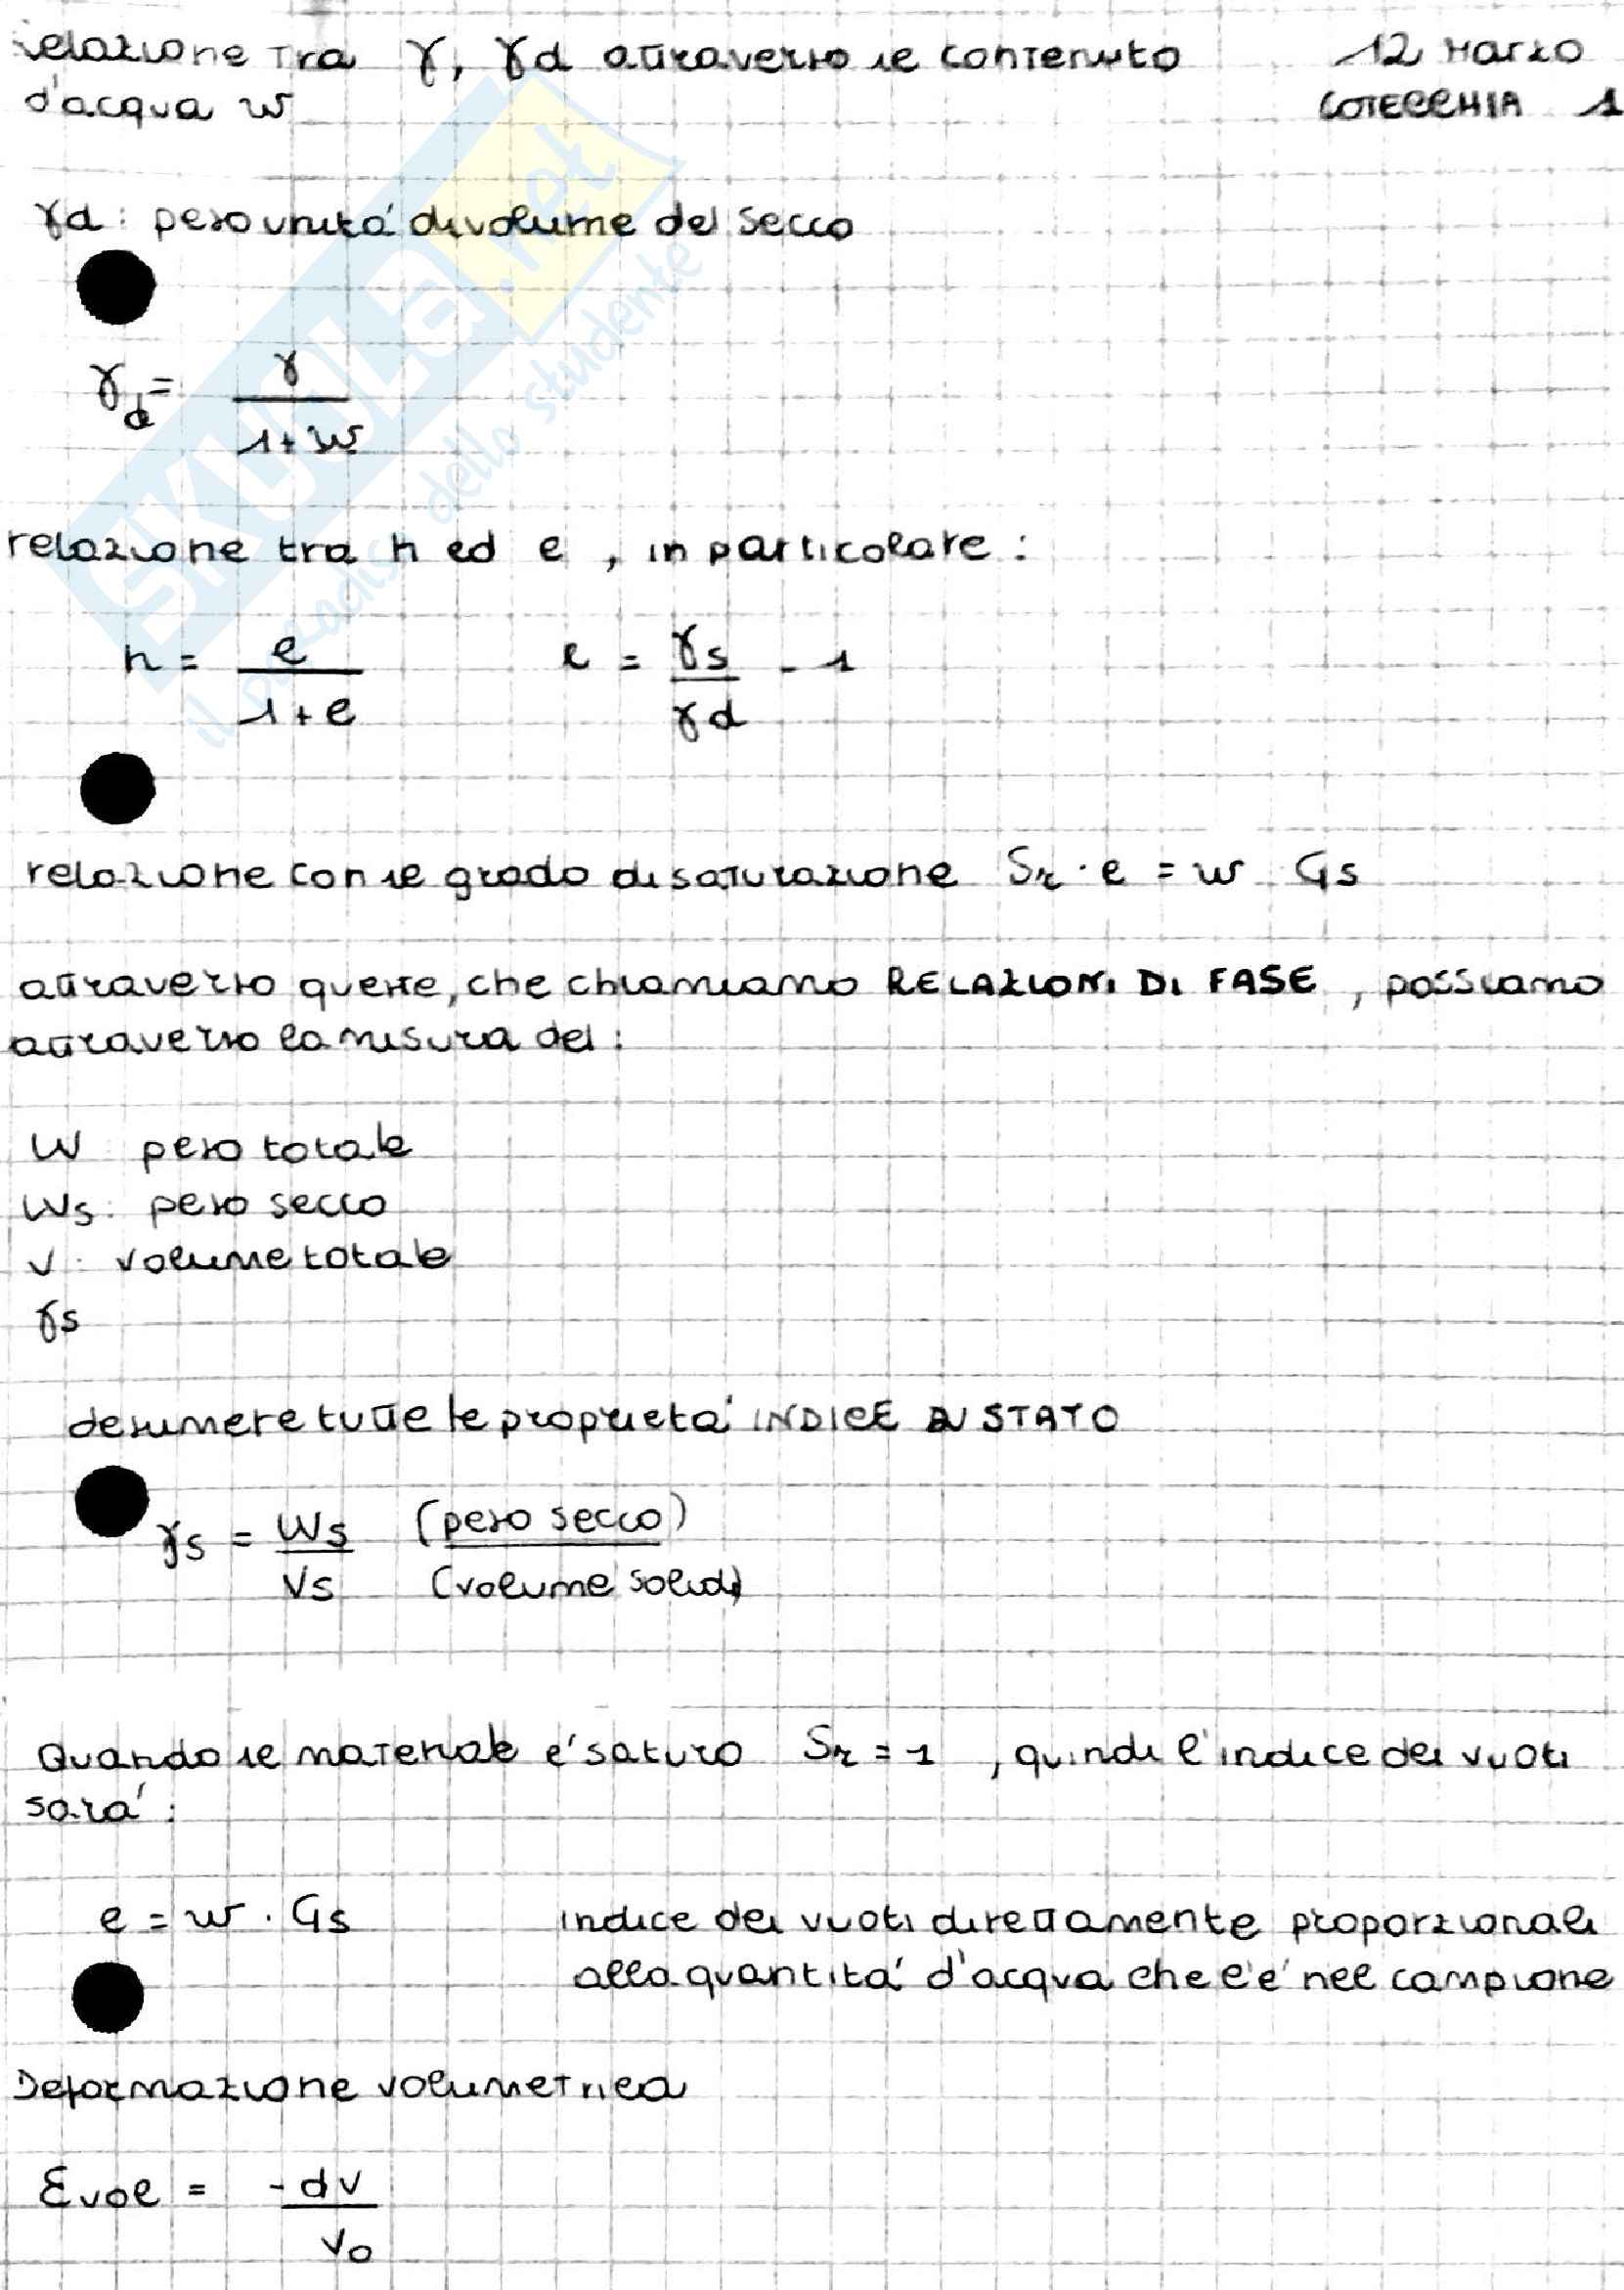 relazione tra γ, γd attraverso il contenuto
d'acqua w
12 Marzo
COTECCHIA 1
γd: peso unità di volume del secco
γd = γ / 1+w
relazione tra n ed e, in particolare:
n = e / 1+e    e = γs / γd - 1
relazione con il grado di saturazione Sr · e = w · Gs
attraverso queste, che chiamiamo RELAZIONI DI FASE, possiamo
attraverso la misura del:
W peso totale
Ws: peso secco
V: volume totale
γs
desumere tutte le proprietà INDICE DI STATO
γs = Ws / Vs (peso secco) / (volume solidi)
Quando il materiale è saturo Sr = 1, quindi l'indice dei vuoti
sarà:
e = w · Gs    indice dei vuoti direttamente proporzionali
alla quantità d'acqua che c'è nel campione
Deformazione volumetrica
εvol = -dv / v0
SKUOLA.net
il paradiso dello studente